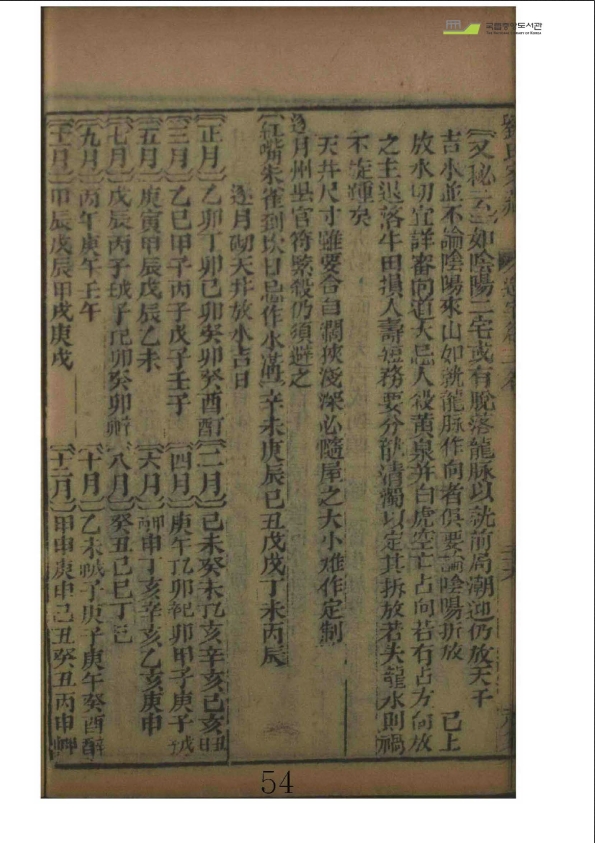 국립중앙도서관
THE NATIONAL LIBRARY OF KOREA
又秘云如陰陽二宅或有脫落龍脉以就前局潮迎仍放天干
吉水並不論陰陽來山如就龍脉作向者俱要論陰陽折放 已上
放水切宜詳審向道大忌人殺黃泉并白虎空亡占向若有占方向放
之主退落牛田損人壽短務要分龍清濁以定其拆放若失龍水則禍
不旋踵矣
天井尺寸雖要合白濶狹淺深必隨屋之大小难作定制
逐月州县官符緊殺仍須避之
紅嘴朱雀到坎日忌作水溝 辛未庚辰己丑戊戌丁未丙辰
逐月砌天井放水吉日
正月 乙卯丁卯己卯癸卯癸酉 二月 己未癸未乙亥辛亥己亥
三月 乙巳甲子丙子戊子壬子 四月 庚午乙卯 卯甲子庚子
五月 庚寅甲辰戊辰乙未 六月 甲申丁亥辛亥乙亥庚申
七月 戊辰丙子 子 卯癸卯 八月 癸丑己巳丁
九月 丙午庚午壬午 十月 乙未 子庚子庚午癸酉
十一月 甲辰戊辰甲戌庚戌 十二月 甲申庚申己丑癸丑丙申
54